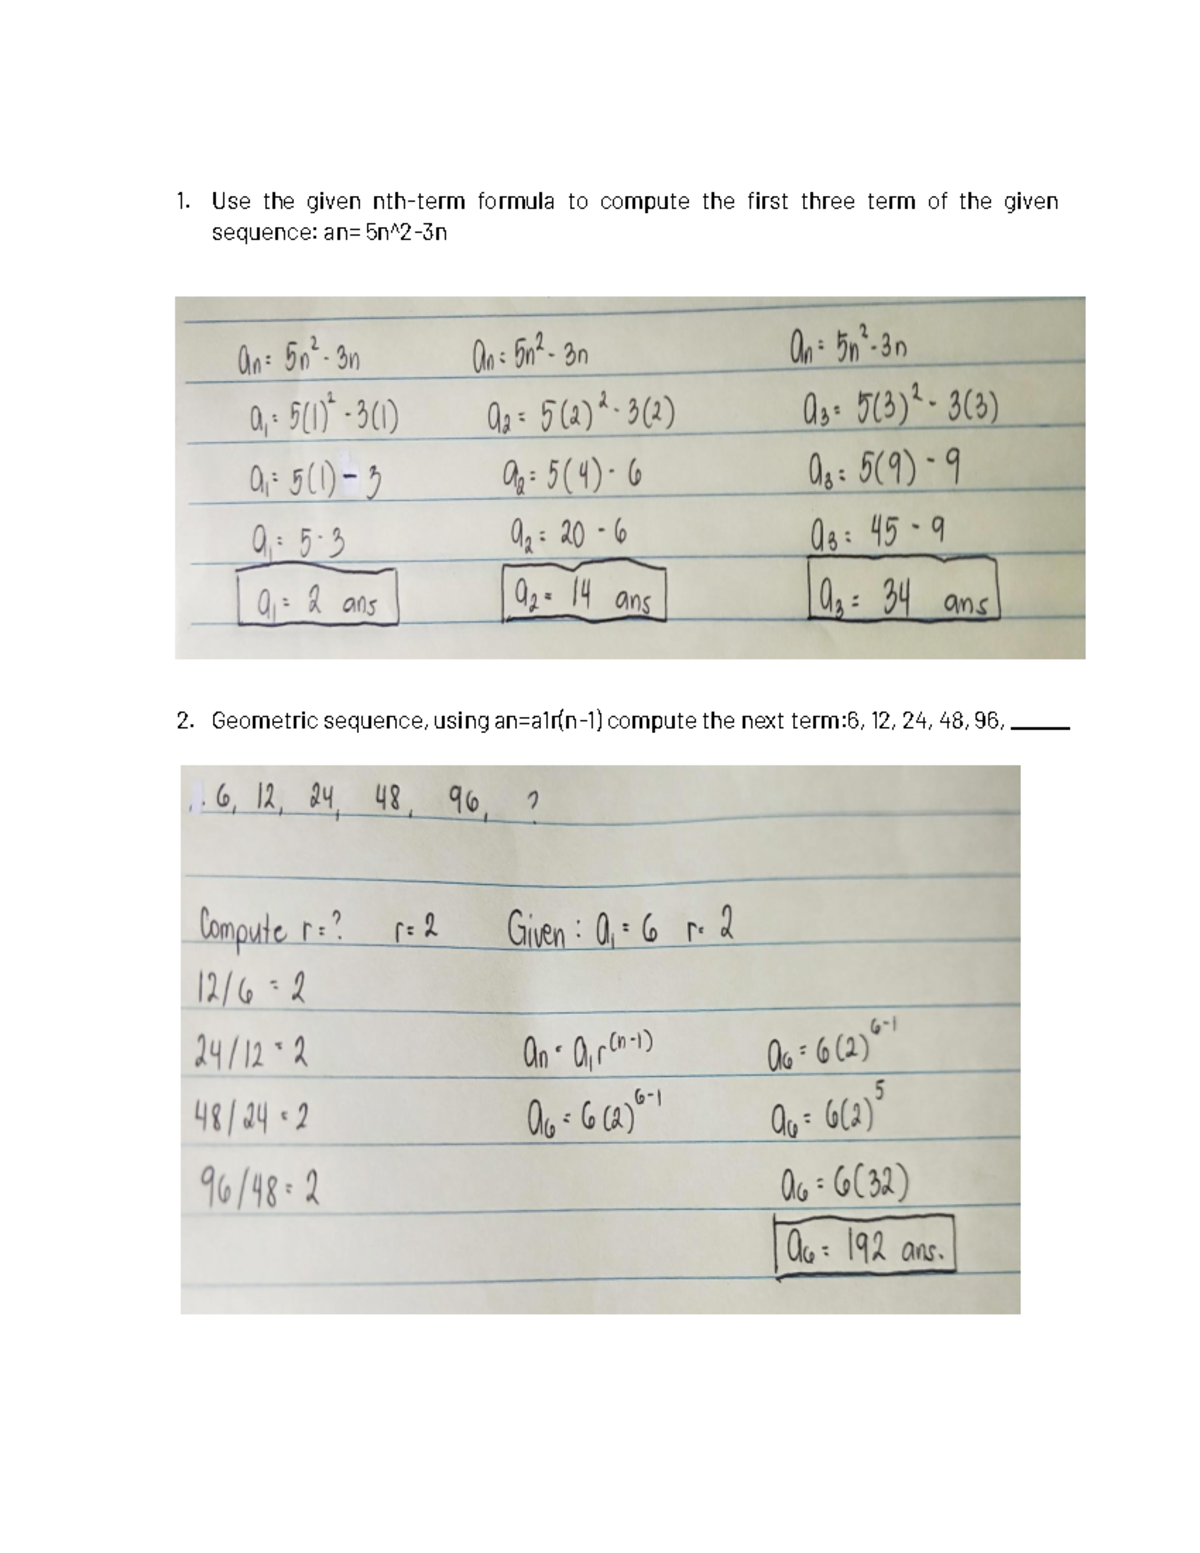 1. Use the given nth-term formula to compute the first three term of the given
sequence: an= 5n^2-3n
an = 5n² - 3n
a₁ = 5(1)² - 3(1)
a₁ = 5(1) - 3
a₁ = 5 - 3
a₁ = 2 ans
an = 5n² - 3n
a₂ = 5(2)² - 3(2)
a₂ = 5(4) - 6
a₂ = 20 - 6
a₂ = 14 ans
an = 5n² - 3n
a₃ = 5(3)² - 3(3)
a₃ = 5(9) - 9
a₃ = 45 - 9
a₃ = 34 ans
2. Geometric sequence, using an=a1r(n-1) compute the next term:6, 12, 24, 48, 96, _____
6, 12, 24, 48, 96, ?
Compute r = ? r = 2
12/6 = 2
24/12 = 2
48/24 = 2
96/48 = 2
Given : a₁ = 6 r = 2
an = a₁r⁽ⁿ⁻¹⁾
a₆ = 6(2)⁶⁻¹
a₆ = 6(2)⁶⁻¹
a₆ = 6(2)⁵
a₆ = 6(32)
a₆ = 192 ans.